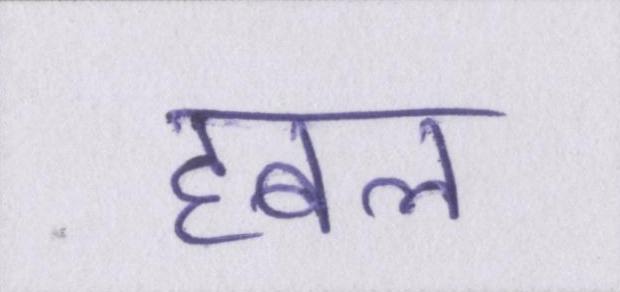 हबल